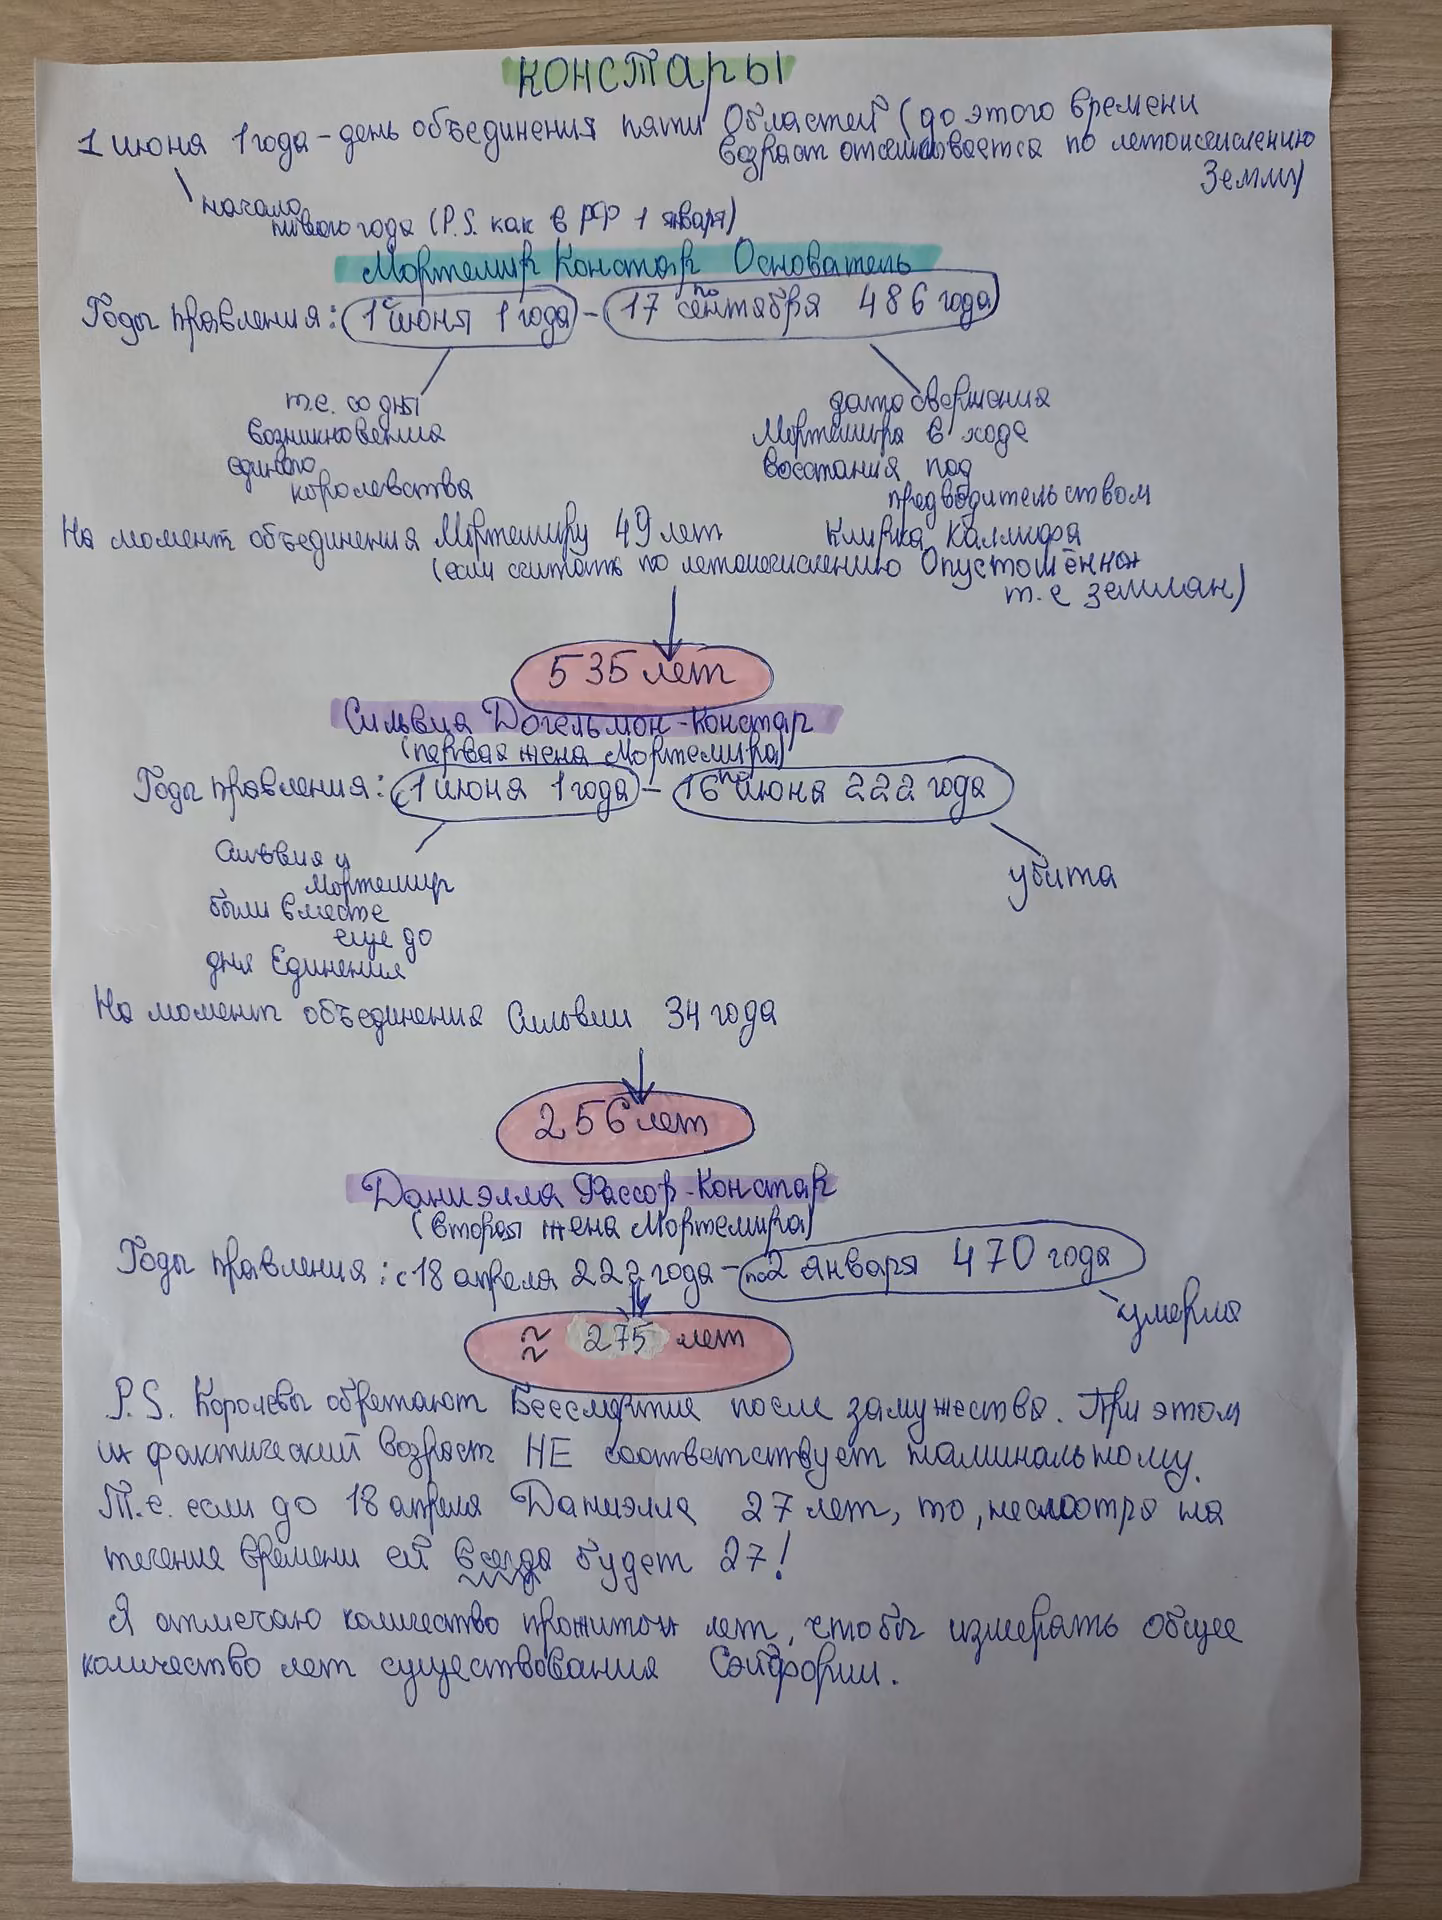 КОНСТАРЫ
1 июня 1 года - день объединения пяти Областей (до этого времени
возраст отсчитывается по летоисчислению
Земли)
начало
нового года (P.S. как в РФ 1 января)
Мортемир Констар Основатель
Годы правления: с 1 июня 1 года - по 17 сентября 486 года
т.е. со дны
возникновения
единого
королевства
дата свержения
Мортемира в ходе
восстания под
предводительством
Клирка Каллиора
На момент объединения Мортемиру 49 лет
(если считать по летоисчислению Опустошённых
т.е землян)
535 лет
Сильвия Догельмон-Констар
(первая жена Мортемира)
Годы правления: с 1 июня 1 года - по 16 июня 222 года
Сильвия и
Мортемир
были вместе
еще до
дня Единения
убита
На момент объединения Сильвии 34 года
256 лет
Даниэлла Фассор-Констар
(вторая жена Мортемира)
Годы правления: с 18 апреля 222 года - по 2 января 470 года
умерла
≈ 275 лет
P.S. Королевы обретают Бессмертие после замужества. При этом
их фактический возраст НЕ соответствует номинальному.
Т.е. если до 18 апреля Даниэлла 27 лет, то, несмотря на
течение времени ей всегда будет 27!
Я отмечаю количество прожитых лет, чтобы измерать общее
количество лет существования Сэйфории.